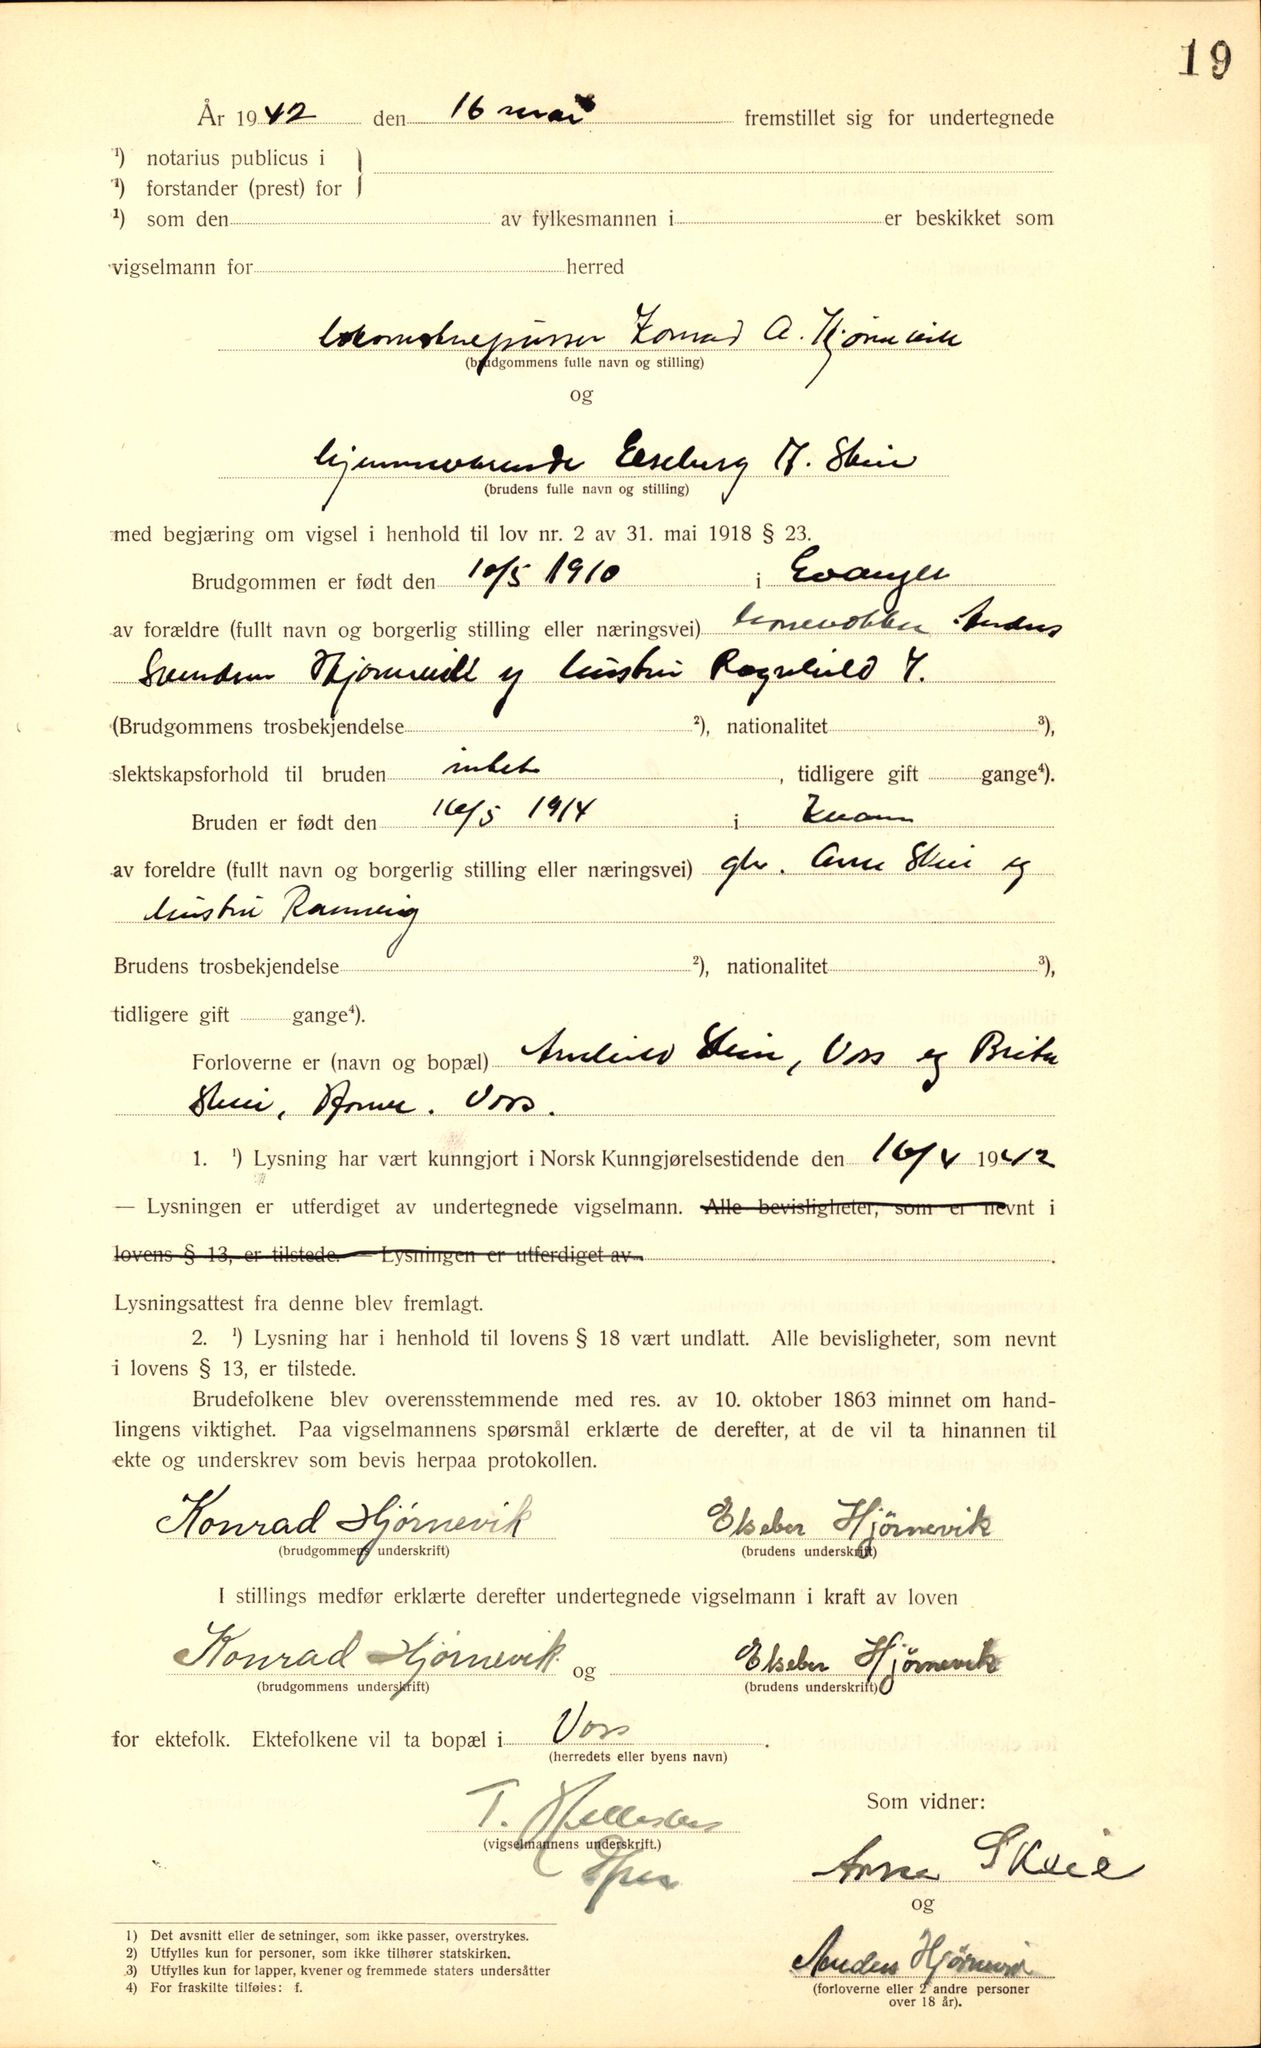 19
År 1942 den 16 mai fremstillet sig for undertegnede
¹) notarius publicus i
¹) forstander (prest) for
¹) som den av fylkesmannen i er beskikket som
vigselmann for herred
Konrad A. Hjørnevik
(brudgommens fulle navn og stilling)
og
hjemmeværende Elseburg A. Skeie
(brudens fulle navn og stilling)
med begjæring om vigsel i henhold til lov nr. 2 av 31. mai 1918 § 23.
Brudgommen er født den 10/5 1910 i Evanger
av forældre (fullt navn og borgerlig stilling eller næringsvei) banevokter Anders
Svendsen Hjørnevik og hustru Ragnhild
(Brudgommens trosbekjendelse ²), nationalitet ³),
slektskapsforhold til bruden intet , tidligere gift gange⁴).
Bruden er født den 16/5 1914 i
av foreldre (fullt navn og borgerlig stilling eller næringsvei) gbr. Arne Skeie og
hustru Rannveig
Brudens trosbekjendelse ²), nationalitet ³),
tidligere gift gange⁴).
Forloverne er (navn og bopæl) Arnhild Skeie, Voss og Brita
Skeie, . Voss.
1. ¹) Lysning har vært kunngjort i Norsk Kunngjørelsestidende den 16/4 1942
— Lysningen er utferdiget av undertegnede vigselmann. Alle bevisligheter, som er nevnt i
lovens § 13, er tilstede. — Lysningen er utferdiget av .
Lysningsattest fra denne blev fremlagt.
2. ¹) Lysning har i henhold til lovens § 18 vært undlatt. Alle bevisligheter, som nevnt
i lovens § 13, er tilstede.
Brudefolkene blev overensstemmende med res. av 10. oktober 1863 minnet om hand-
lingens viktighet. Paa vigselmannens spørsmål erklærte de derefter, at de vil ta hinannen til
ekte og underskrev som bevis herpaa protokollen.
Konrad Hjørnevik Elseber Hjørnevik
(brudgommens underskrift) (brudens underskrift)
I stillings medfør erklærte derefter undertegnede vigselmann i kraft av loven
Konrad Hjørnevik og Elseber Hjørnevik
(brudgommens underskrift) (brudens underskrift)
for ektefolk. Ektefolkene vil ta bopæl i Voss .
(herredets eller byens navn)
T.
(vigselmannens underskrift.)
Som vidner:
Arne Skeie
og
Anders Hjørnevik
(forloverne eller 2 andre personer
over 18 år).
1) Det avsnitt eller de setninger, som ikke passer, overstrykes.
2) Utfylles kun for personer, som ikke tilhører statskirken.
3) Utfylles kun for lapper, kvener og fremmede staters undersåtter
4) For fraskilte tilføies: f.